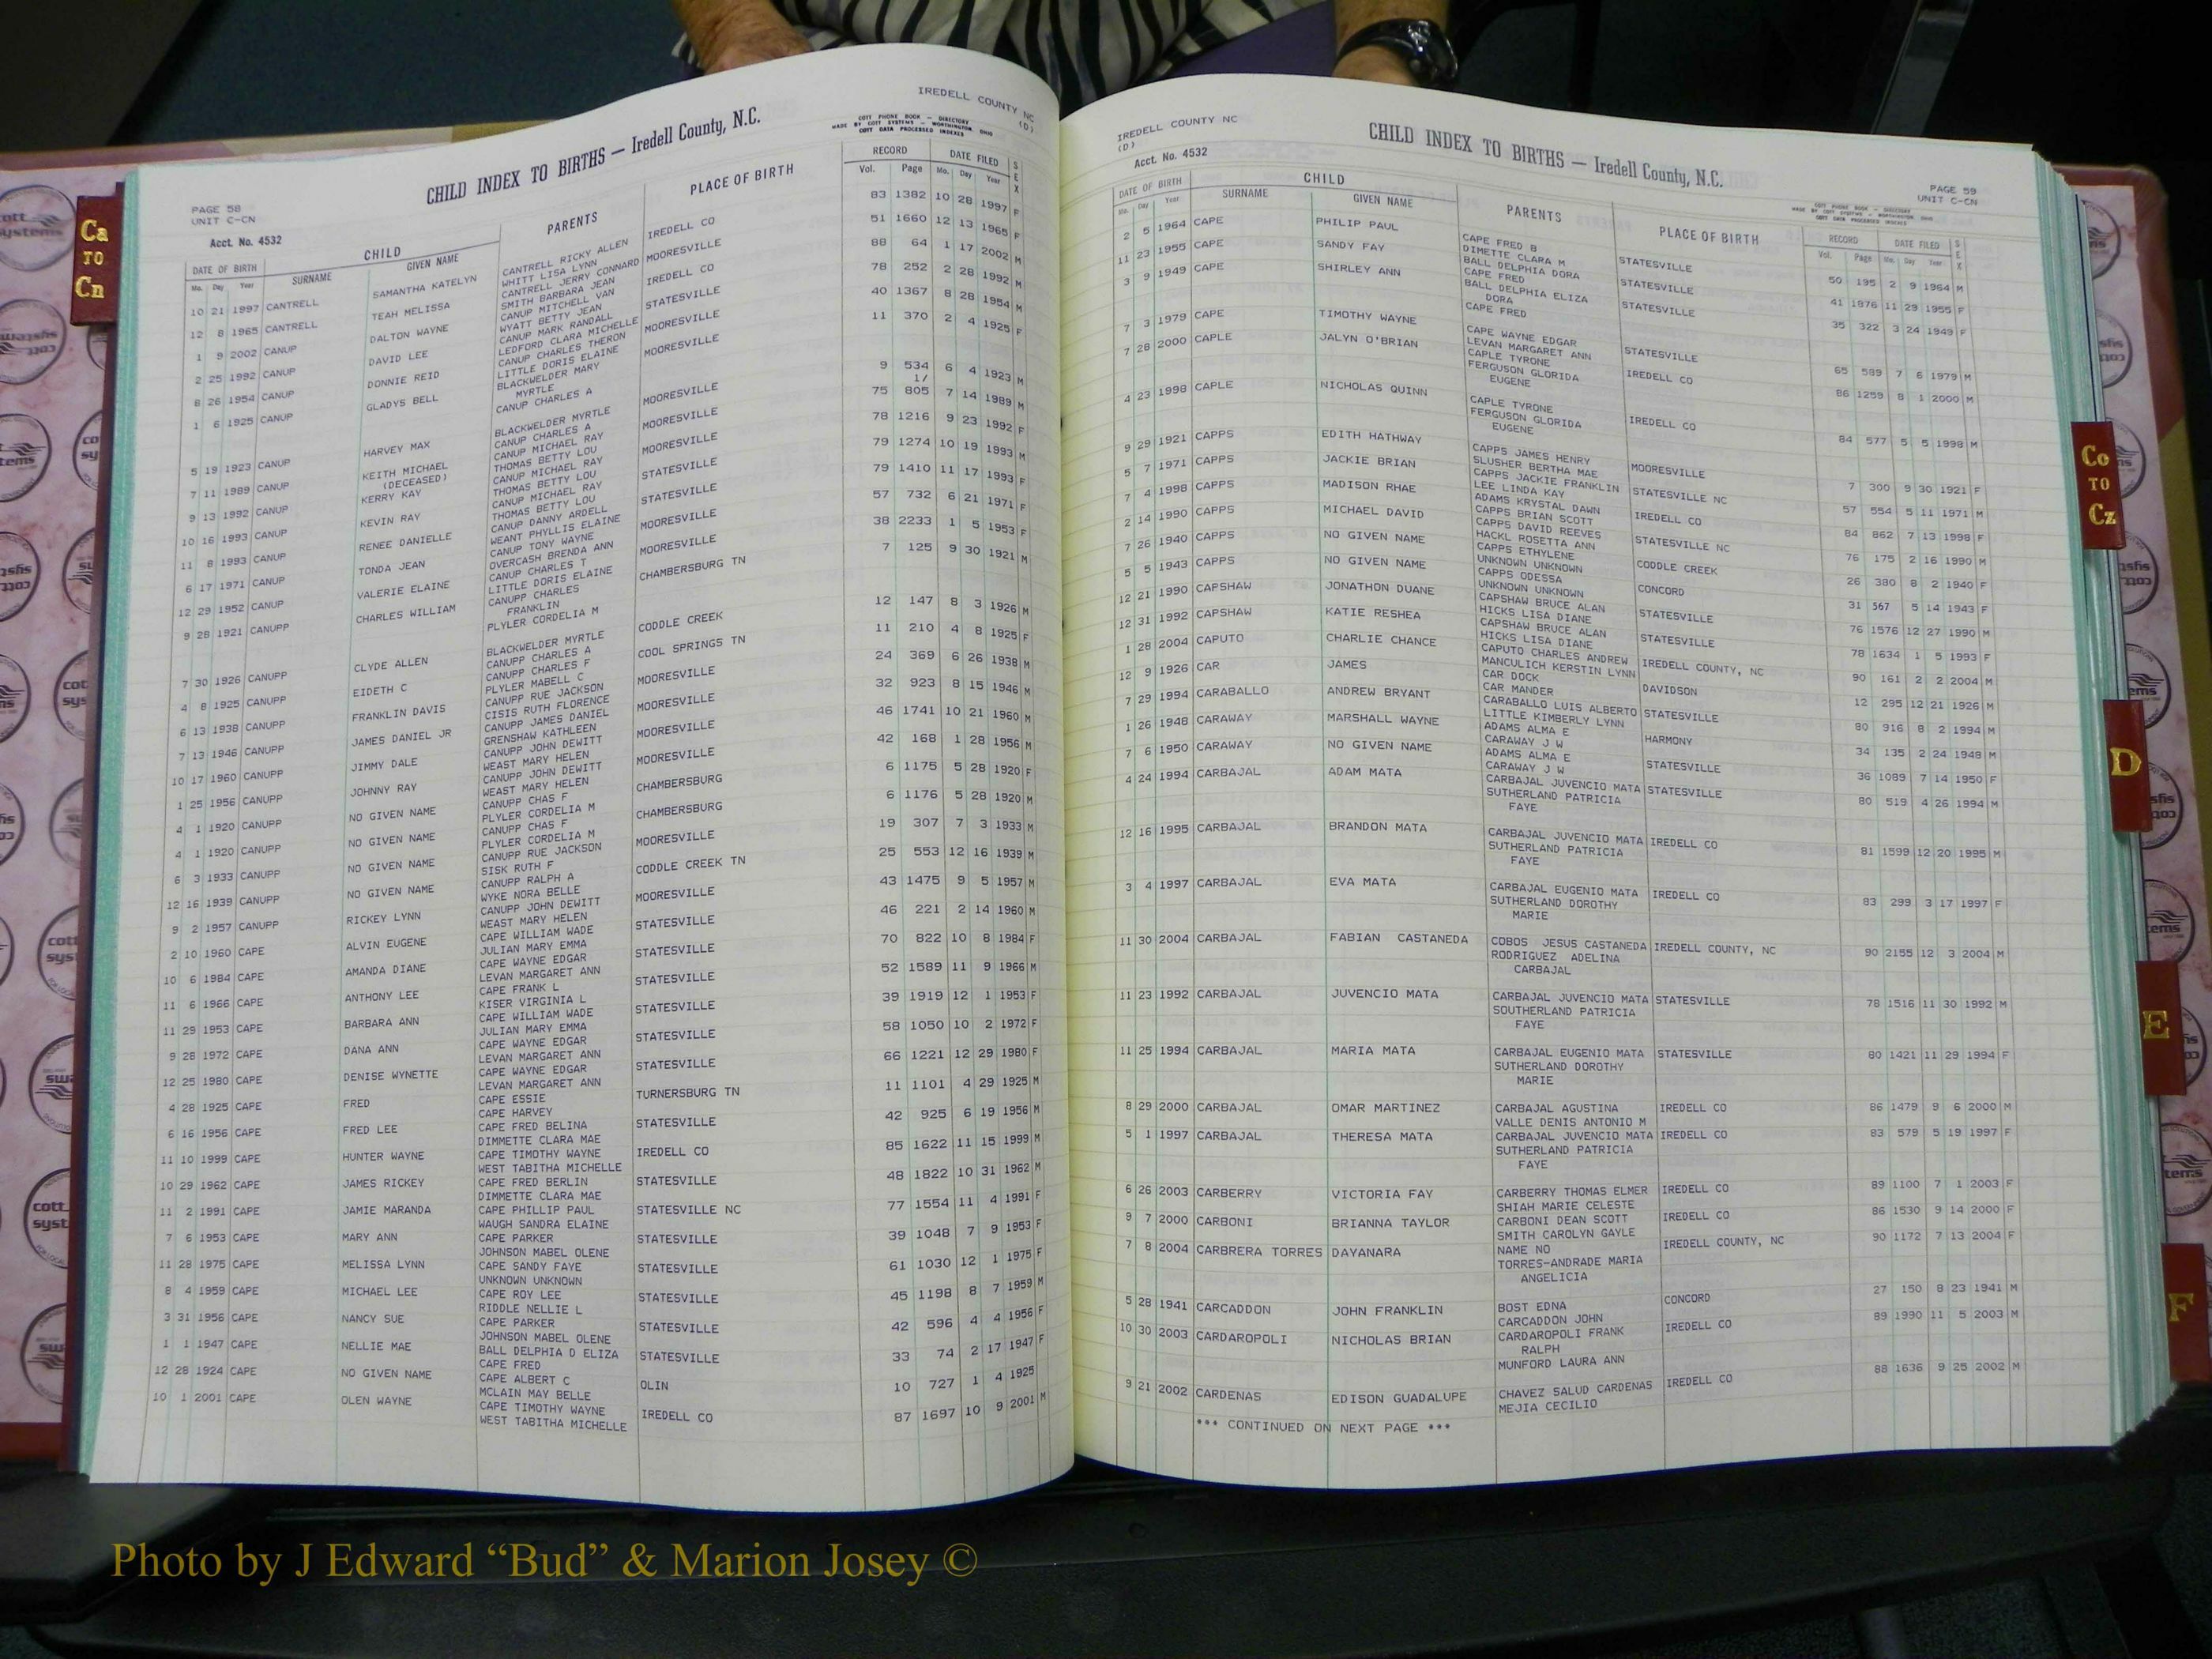 IREDELL COUNTY NC
(D)
COTT PHONE BOOK — DIRECTORY
MADE BY COTT SYSTEMS — WORTHINGTON OHIO
COTT DATA PROCESSED INDEXES
CHILD INDEX TO BIRTHS — Iredell County, N.C.
PAGE 58
UNIT C-CN
Acct. No. 4532
DATE OF BIRTH CHILD PARENTS PLACE OF BIRTH RECORD DATE FILED SEX
Mo. Day Year SURNAME GIVEN NAME Vol. Page Mo. Day Year
10 21 1997 CANTRELL SAMANTHA KATELYN CANTRELL RICKY ALLEN IREDELL CO 83 1382 10 28 1997 F
WHITT LISA LYNN
12 8 1965 CANTRELL TEAH MELISSA CANTRELL JERRY CONNARD MOORESVILLE 51 1660 12 13 1965 F
SMITH BARBARA JEAN
1 9 2002 CANUP DALTON WAYNE CANUP MITCHELL VAN IREDELL CO 88 64 1 17 2002 M
WYATT BETTY JEAN
2 25 1992 CANUP DAVID LEE CANUP MARK RANDALL STATESVILLE 78 252 2 28 1992 M
LEDFORD CLARA MICHELLE
8 26 1954 CANUP DONNIE REID CANUP CHARLES THERON MOORESVILLE 40 1367 8 28 1954 M
LITTLE DORIS ELAINE
1 6 1925 CANUP GLADYS BELL BLACKWELDER MARY MOORESVILLE 11 370 2 4 1925 F
MYRTLE
CANUP CHARLES A
5 19 1923 CANUP HARVEY MAX BLACKWELDER MYRTLE MOORESVILLE 9 534 6 4 1923 M
CANUP CHARLES A 1/
7 11 1989 CANUP KEITH MICHAEL CANUP MICHAEL RAY MOORESVILLE 75 805 7 14 1989 M
(DECEASED) THOMAS BETTY LOU
9 13 1992 CANUP KERRY KAY CANUP MICHAEL RAY MOORESVILLE 78 1216 9 23 1992 F
THOMAS BETTY LOU
10 16 1993 CANUP KEVIN RAY CANUP MICHAEL RAY STATESVILLE 79 1274 10 19 1993 M
THOMAS BETTY LOU
11 8 1993 CANUP RENEE DANIELLE CANUP DANNY ARDELL STATESVILLE 79 1410 11 17 1993 F
WEANT PHYLLIS ELAINE
6 17 1971 CANUP TONDA JEAN CANUP TONY WAYNE MOORESVILLE 57 732 6 21 1971 F
OVERCASH BRENDA ANN
12 29 1952 CANUP VALERIE ELAINE CANUP CHARLES T MOORESVILLE 38 2233 1 5 1953 F
LITTLE DORIS ELAINE
9 28 1921 CANUPP CHARLES WILLIAM CANUPP CHARLES CHAMBERSBURG TN 7 125 9 30 1921 M
FRANKLIN
PLYLER CORDELIA M
7 30 1926 CANUPP CLYDE ALLEN BLACKWELDER MYRTLE CODDLE CREEK 12 147 8 3 1926 M
CANUPP CHARLES A
4 8 1925 CANUPP EIDETH C CANUPP CHARLES F COOL SPRINGS TN 11 210 4 8 1925 F
PLYLER MABELL C
6 13 1938 CANUPP FRANKLIN DAVIS CANUPP RUE JACKSON MOORESVILLE 24 369 6 26 1938 M
CISIS RUTH FLORENCE
7 13 1946 CANUPP JAMES DANIEL JR CANUPP JAMES DANIEL MOORESVILLE 32 923 8 15 1946 M
GRENSHAW KATHLEEN
10 17 1960 CANUPP JIMMY DALE CANUPP JOHN DEWITT MOORESVILLE 46 1741 10 21 1960 M
WEAST MARY HELEN
1 25 1956 CANUPP JOHNNY RAY CANUPP JOHN DEWITT MOORESVILLE 42 168 1 28 1956 M
WEAST MARY HELEN
4 1 1920 CANUPP NO GIVEN NAME CANUPP CHAS F CHAMBERSBURG 6 1175 5 28 1920 F
PLYLER CORDELIA M
4 1 1920 CANUPP NO GIVEN NAME CANUPP CHAS F CHAMBERSBURG 6 1176 5 28 1920 M
PLYLER CORDELIA M
6 3 1933 CANUPP NO GIVEN NAME CANUPP RUE JACKSON MOORESVILLE 19 307 7 3 1933 M
SISK RUTH F
12 16 1939 CANUPP NO GIVEN NAME CANUPP RALPH A CODDLE CREEK TN 25 553 12 16 1939 M
WYKE NORA BELLE
9 2 1957 CANUPP RICKEY LYNN CANUPP JOHN DEWITT MOORESVILLE 43 1475 9 5 1957 M
WEAST MARY HELEN
2 10 1960 CAPE ALVIN EUGENE CAPE WILLIAM WADE STATESVILLE 46 221 2 14 1960 M
JULIAN MARY EMMA
10 6 1984 CAPE AMANDA DIANE CAPE WAYNE EDGAR STATESVILLE 70 822 10 8 1984 F
LEVAN MARGARET ANN
11 6 1966 CAPE ANTHONY LEE CAPE FRANK L STATESVILLE 52 1589 11 9 1966 M
KISER VIRGINIA L
11 29 1953 CAPE BARBARA ANN CAPE WILLIAM WADE STATESVILLE 39 1919 12 1 1953 F
JULIAN MARY EMMA
9 28 1972 CAPE DANA ANN CAPE WAYNE EDGAR STATESVILLE 58 1050 10 2 1972 F
LEVAN MARGARET ANN
12 25 1980 CAPE DENISE WYNETTE CAPE WAYNE EDGAR STATESVILLE 66 1221 12 29 1980 F
LEVAN MARGARET ANN
4 28 1925 CAPE FRED CAPE ESSIE TURNERSBURG TN 11 1101 4 29 1925 M
CAPE HARVEY
6 16 1956 CAPE FRED LEE CAPE FRED BELINA STATESVILLE 42 925 6 19 1956 M
DIMMETTE CLARA MAE
11 10 1999 CAPE HUNTER WAYNE CAPE TIMOTHY WAYNE IREDELL CO 85 1622 11 15 1999 M
WEST TABITHA MICHELLE
10 29 1962 CAPE JAMES RICKEY CAPE FRED BERLIN STATESVILLE 48 1822 10 31 1962 M
DIMMETTE CLARA MAE
11 2 1991 CAPE JAMIE MARANDA CAPE PHILLIP PAUL STATESVILLE NC 77 1554 11 4 1991 F
WAUGH SANDRA ELAINE
7 6 1953 CAPE MARY ANN CAPE PARKER STATESVILLE 39 1048 7 9 1953 F
JOHNSON MABEL OLENE
11 28 1975 CAPE MELISSA LYNN CAPE SANDY FAYE STATESVILLE 61 1030 12 1 1975 F
UNKNOWN UNKNOWN
8 4 1959 CAPE MICHAEL LEE CAPE ROY LEE STATESVILLE 45 1198 8 7 1959 M
RIDDLE NELLIE L
3 31 1956 CAPE NANCY SUE CAPE PARKER STATESVILLE 42 596 4 4 1956 F
JOHNSON MABEL OLENE
1 1 1947 CAPE NELLIE MAE BALL DELPHIA D ELIZA STATESVILLE 33 74 2 17 1947 F
CAPE FRED
12 28 1924 CAPE NO GIVEN NAME CAPE ALBERT C OLIN 10 727 1 4 1925
MCLAIN MAY BELLE
10 1 2001 CAPE OLEN WAYNE CAPE TIMOTHY WAYNE IREDELL CO 87 1697 10 9 2001 M
WEST TABITHA MICHELLE
IREDELL COUNTY NC
(D)
Acct. No. 4532
CHILD INDEX TO BIRTHS — Iredell County, N.C.
PAGE 59
UNIT C-CN
COTT PHONE BOOK — DIRECTORY
MADE BY COTT SYSTEMS — WORTHINGTON OHIO
COTT DATA PROCESSED INDEXES
DATE OF BIRTH CHILD PARENTS PLACE OF BIRTH RECORD DATE FILED SEX
Mo. Day Year SURNAME GIVEN NAME Vol. Page Mo. Day Year
2 5 1964 CAPE PHILIP PAUL CAPE FRED B STATESVILLE 50 195 2 9 1964 M
DIMETTE CLARA M
11 23 1955 CAPE SANDY FAY BALL DELPHIA DORA STATESVILLE 41 1976 11 29 1955 F
CAPE FRED
3 9 1949 CAPE SHIRLEY ANN BALL DELPHIA ELIZA STATESVILLE 35 322 3 24 1949 F
DORA
CAPE FRED
7 3 1979 CAPE TIMOTHY WAYNE CAPE WAYNE EDGAR STATESVILLE 65 589 7 6 1979 M
LEVAN MARGARET ANN
7 28 2000 CAPLE JALYN O'BRIAN CAPLE TYRONE IREDELL CO 86 1259 8 1 2000 M
FERGUSON GLORIDA
EUGENE
4 23 1998 CAPLE NICHOLAS QUINN CAPLE TYRONE IREDELL CO 84 577 5 5 1998 M
FERGUSON GLORIDA
EUGENE
9 29 1921 CAPPS EDITH HATHWAY CAPPS JAMES HENRY MOORESVILLE 7 300 9 30 1921 F
SLUSHER BERTHA MAE
5 7 1971 CAPPS JACKIE BRIAN CAPPS JACKIE FRANKLIN STATESVILLE NC 57 554 5 11 1971 M
LEE LINDA KAY
7 4 1998 CAPPS MADISON RHAE ADAMS KRYSTAL DAWN IREDELL CO 84 862 7 13 1998 F
CAPPS BRIAN SCOTT
2 14 1990 CAPPS MICHAEL DAVID CAPPS DAVID REEVES STATESVILLE NC 76 175 2 16 1990 M
HACKL ROSETTA ANN
7 26 1940 CAPPS NO GIVEN NAME CAPPS ETHYLENE CODDLE CREEK 26 380 8 2 1940 F
UNKNOWN UNKNOWN
5 5 1943 CAPPS NO GIVEN NAME CAPPS ODESSA CONCORD 31 567 5 14 1943 F
UNKNOWN UNKNOWN
12 21 1990 CAPSHAW JONATHON DUANE CAPSHAW BRUCE ALAN STATESVILLE 76 1576 12 27 1990 M
HICKS LISA DIANE
12 31 1992 CAPSHAW KATIE RESHEA CAPSHAW BRUCE ALAN STATESVILLE 78 1634 1 5 1993 F
HICKS LISA DIANE
1 28 2004 CAPUTO CHARLIE CHANCE CAPUTO CHARLES ANDREW IREDELL COUNTY, NC 90 161 2 2 2004 M
MANCULICH KERSTIN LYNN
12 9 1926 CAR JAMES CAR DOCK DAVIDSON 12 295 12 21 1926 M
CAR MANDER
7 29 1994 CARABALLO ANDREW BRYANT CARABALLO LUIS ALBERTO STATESVILLE 80 916 8 2 1994 M
LITTLE KIMBERLY LYNN
1 26 1948 CARAWAY MARSHALL WAYNE ADAMS ALMA E HARMONY 34 135 2 24 1948 M
CARAWAY J W
7 6 1950 CARAWAY NO GIVEN NAME ADAMS ALMA E STATESVILLE 36 1089 7 14 1950 F
CARAWAY J W
4 24 1994 CARBAJAL ADAM MATA CARBAJAL JUVENCIO MATA STATESVILLE 80 519 4 26 1994 M
SUTHERLAND PATRICIA
FAYE
12 16 1995 CARBAJAL BRANDON MATA CARBAJAL JUVENCIO MATA IREDELL CO 81 1599 12 20 1995 M
SUTHERLAND PATRICIA
FAYE
3 4 1997 CARBAJAL EVA MATA CARBAJAL EUGENIO MATA IREDELL CO 83 299 3 17 1997 F
SUTHERLAND DOROTHY
MARIE
11 30 2004 CARBAJAL FABIAN CASTANEDA COBOS JESUS CASTANEDA IREDELL COUNTY, NC 90 2155 12 3 2004 M
RODRIGUEZ ADELINA
CARBAJAL
11 23 1992 CARBAJAL JUVENCIO MATA CARBAJAL JUVENCIO MATA STATESVILLE 78 1516 11 30 1992 M
SOUTHERLAND PATRICIA
FAYE
11 25 1994 CARBAJAL MARIA MATA CARBAJAL EUGENIO MATA STATESVILLE 80 1421 11 29 1994 F
SUTHERLAND DOROTHY
MARIE
8 29 2000 CARBAJAL OMAR MARTINEZ CARBAJAL AGUSTINA IREDELL CO 86 1479 9 6 2000 M
VALLE DENIS ANTONIO M
5 1 1997 CARBAJAL THERESA MATA CARBAJAL JUVENCIO MATA IREDELL CO 83 579 5 19 1997 F
SUTHERLAND PATRICIA
FAYE
6 26 2003 CARBERRY VICTORIA FAY CARBERRY THOMAS ELMER IREDELL CO 89 1100 7 1 2003 F
SHIAH MARIE CELESTE
9 7 2000 CARBONI BRIANNA TAYLOR CARBONI DEAN SCOTT IREDELL CO 86 1530 9 14 2000 F
SMITH CAROLYN GAYLE
7 8 2004 CARBRERA TORRES DAYANARA NAME NO IREDELL COUNTY, NC 90 1172 7 13 2004 F
TORRES-ANDRADE MARIA
ANGELICIA
5 28 1941 CARCADDON JOHN FRANKLIN BOST EDNA CONCORD 27 150 8 23 1941 M
CARCADDON JOHN
10 30 2003 CARDAROPOLI NICHOLAS BRIAN CARDAROPOLI FRANK IREDELL CO 89 1990 11 5 2003 M
RALPH
MUNFORD LAURA ANN
9 21 2002 CARDENAS EDISON GUADALUPE CHAVEZ SALUD CARDENAS IREDELL CO 88 1636 9 25 2002 M
MEJIA CECILIO
*** CONTINUED ON NEXT PAGE ***
Ca
TO
Cn
Co
TO
Cz
D
E
F
cott
systems
Photo by J Edward “Bud” & Marion Josey ©